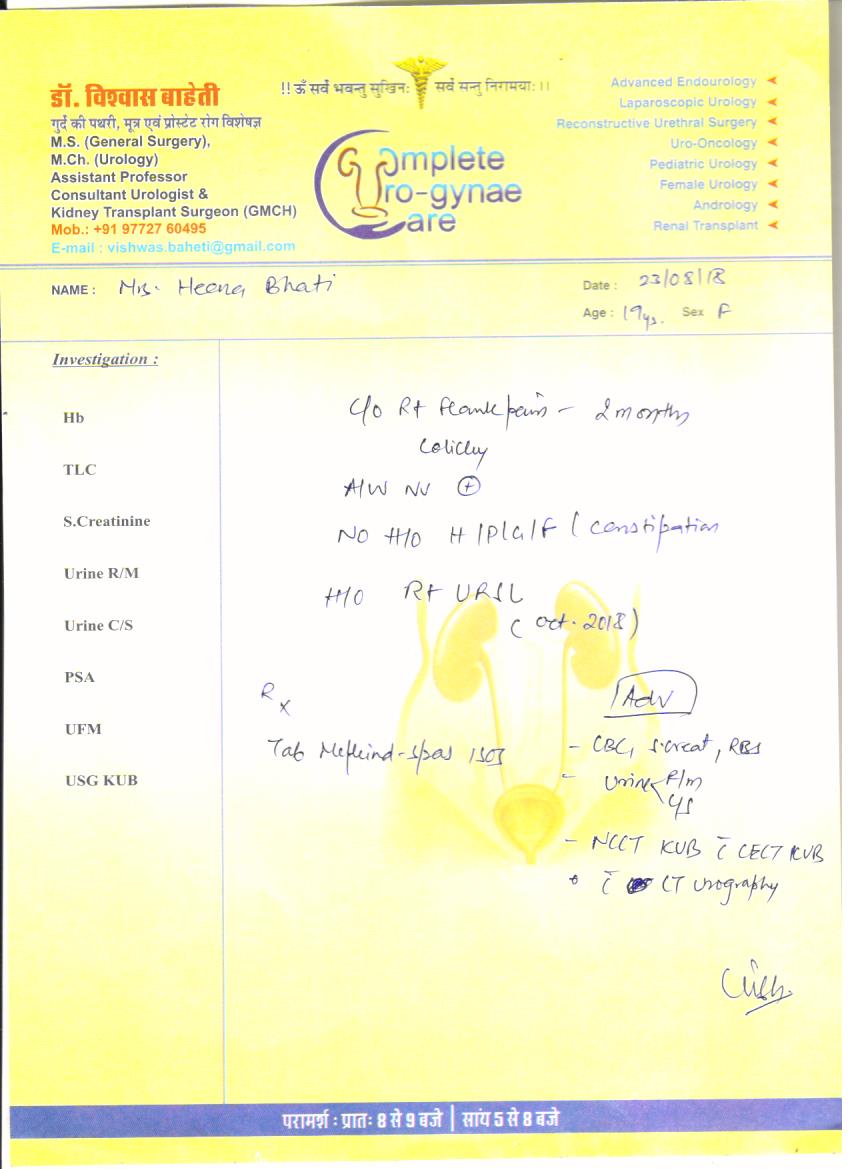 !! ॐ सर्वे भवन्तु सुखिनः सर्वे सन्तु निरामयाः !!
डॉ. विश्वास बाहेती
गुर्दे की पथरी, मूत्र एवं प्रोस्टेट रोग विशेषज्ञ
M.S. (General Surgery),
M.Ch. (Urology)
Assistant Professor
Consultant Urologist &
Kidney Transplant Surgeon (GMCH)
Mob.: +91 97727 60495
E-mail : vishwas.baheti@gmail.com
Complete
Uro-gynae
Care
Advanced Endourology
Laparoscopic Urology
Reconstructive Urethral Surgery
Uro-Oncology
Pediatric Urology
Female Urology
Andrology
Renal Transplant
NAME : Mrs. Heena Bhati
Date : 23/08/18
Age : 19 ys. Sex F
Investigation :
Hb
TLC
S.Creatinine
Urine R/M
Urine C/S
PSA
UFM
USG KUB
C/O Rt Flank pain - 2 months
Colicky
A/W NV +
NO H/O H/P/G/F / constipation
H/O Rt URSL
( Oct. 2018 )
Rx
Tab Mefkind-spas
Adv
- CBC, S.creat, RBS
- Urine R/m
C/s
- NCCT KUB c̄ CECT KUB
c̄ CT urography
परामर्श : प्रातः 8 से 9 बजे | सांय 5 से 8 बजे